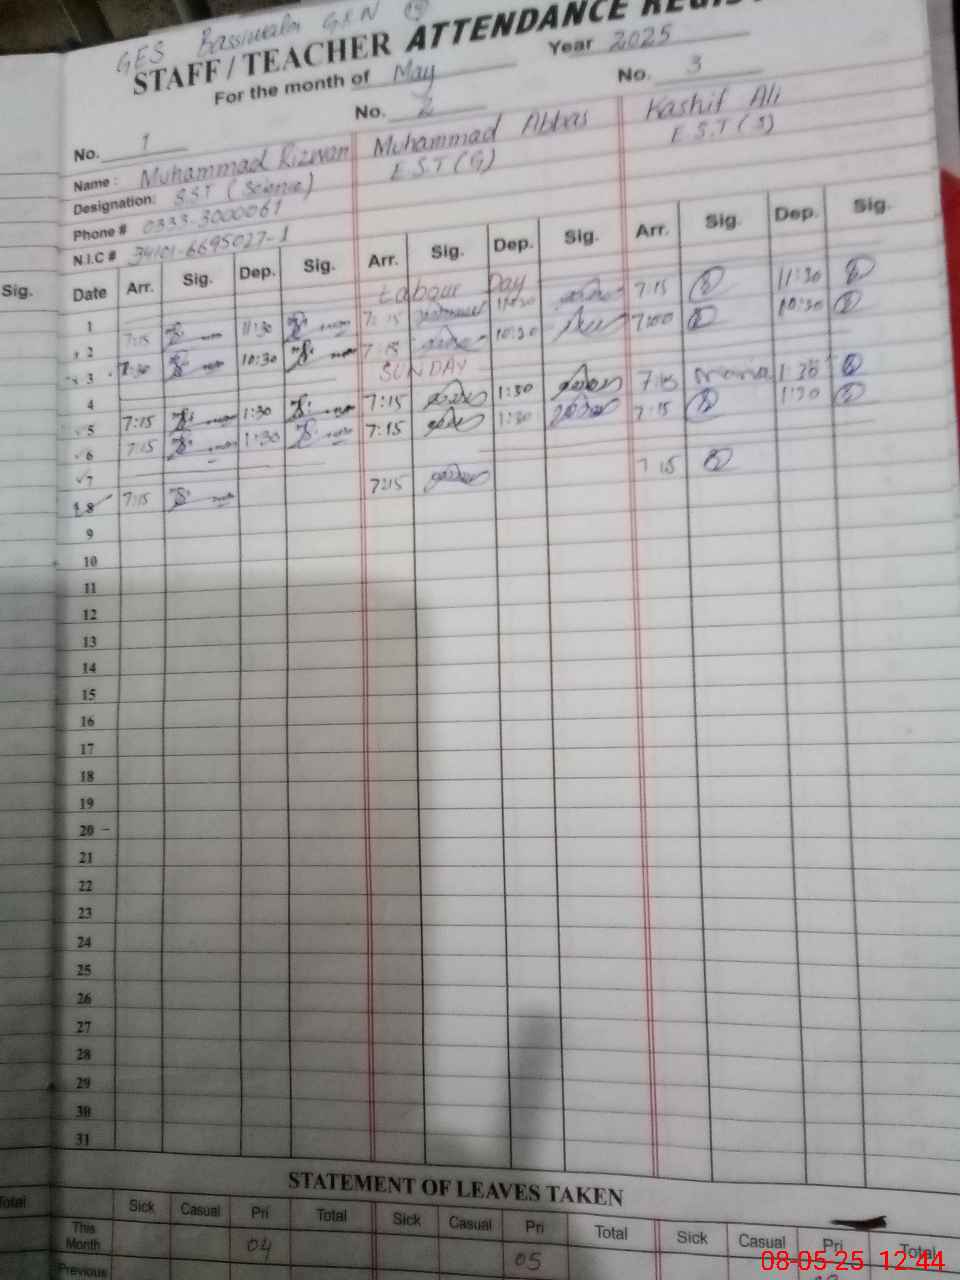 GES Bassiwala GRN
STAFF / TEACHER ATTENDANCE REGIS
For the month of May Year 2025
No. 1 No. 2 No. 3
Name: Muhammad Rizwan Muhammad Abbas Kashif Ali
Designation: SST (Science) E S.T (G) E S.T (S)
Phone # 0333-3000061
N.I.C # 34101-6695027-1
Sig. Date Arr. Sig. Dep. Sig. Arr. Sig. Dep. Sig. Arr. Sig. Dep. Sig.
1 Labour Day
2 7:15 11:30 7:15 11:30 7:15 11:30
3 7:30 10:30 7:15 10:30 7:00 10:30
4 SUNDAY
5 7:15 1:30 7:15 1:30 7:15 1:30
6 7:15 1:30 7:15 1:30 7:15 1:30
7
8 7:15 7:15 7 15
9
10
11
12
13
14
15
16
17
18
19
20 -
21
22
23
24
25
26
27
28
29
30
31
STATEMENT OF LEAVES TAKEN
Total Sick Casual Pri Total Sick Casual Pri Total Sick Casual Pri Total
This Month 04 05
Previous
08-05-25 12:44